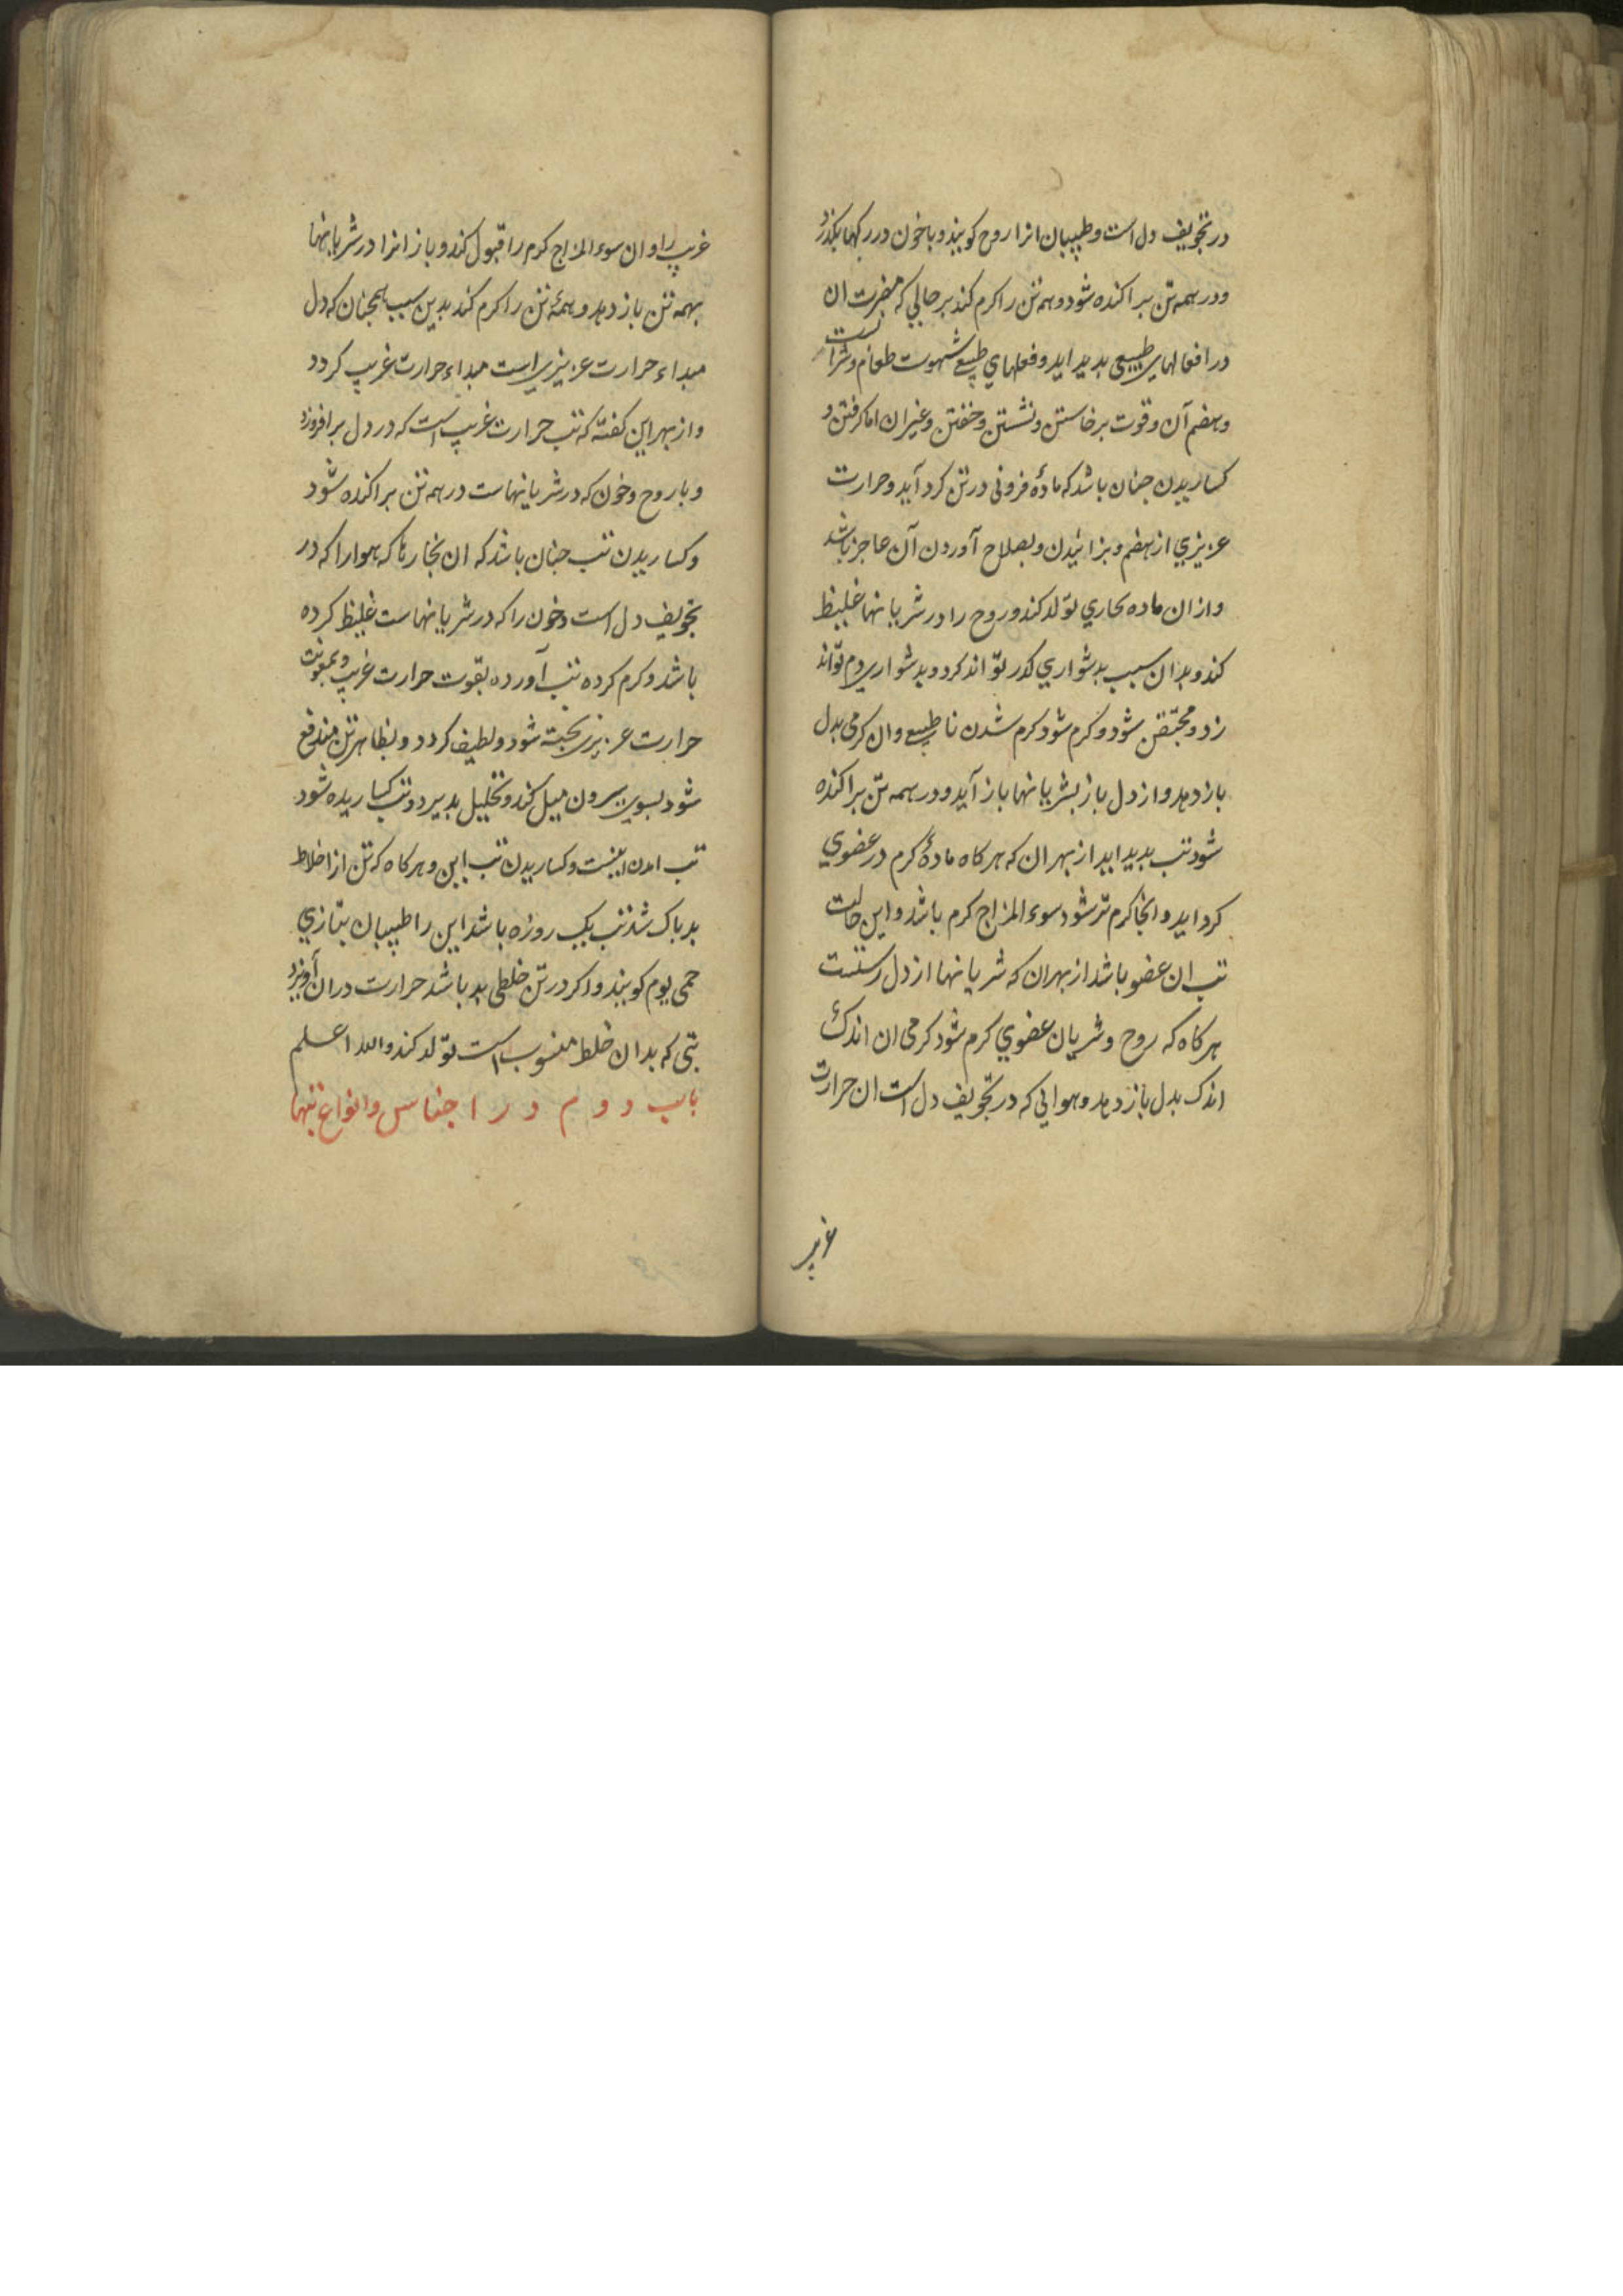 در تجویف دل است و طبیبان انرا روح کویند و با خون در رکها بکذرد
و در همه تن براکنده شود و همه تن را کرم کند بر حالی که مضرت ان
در افعالهای طبیعی بدید اید و فعلهای طبیعی شهوت طعام و شرابست
و هضم آن و قوت برخاستن و نشستن و خفتن و غیر ان اما کرفتن و
کساریدن جنان باشد که مادهٔ فزونی در تن کرد آید و حرارت
عزیزی از هضم و بزائیدن و بصلاح آوردن آن عاجز باشد
و از ان ماده بخاری تولد کند و روح را در شریانها غلیظ
کند و بدان سبب بدشواری کذر تواند کرد و بدشواری دم تواند
زد و محتقن شود و کرم شود کرم شدن نا طبیعی و ان کرمی بدل
باز دهد و از دل باز بشریانها باز آید و در همه تن براکنده
شود تب بدید اید از بهر ان که هر کاه مادهٔ کرم در عضوی
کرد اید و انجا کرم تر شود سوء المزاج کرم باشد و این حالت
تب ان عضو باشد از بهر ان که شریانها از دل رستست
هر کاه که روح و شریان عضوی کرم شود کرمی ان اندک
اندک بدل باز دهد و هوایی که در تجویف دل است ان حرارت
غریب
غریب را و ان سوء المزاج کرم را قبول کند و باز انرا در شریانها
بهمه تن باز دهد و همهٔ تن را کرم کند بدین سبب همجنان که دل
مبداء حرارت عزیزی است مبداء حرارت غریب کردد
و از بهر این کفته که تب حرارت غریب است که در دل برافروزد
و با روح و خون که در شریانهاست در همه تن براکنده شود
و کساریدن تب جنان باشد که ان بخارها که هوا را که در
تجویف دل است و خون را که در شریانهاست غلیظ کرده
باشد و کرم کرده تب آورده بقوت حرارت غریب و بمعونت
حرارت عزیزی بخته شود و لطیف کردد و بظاهر تن مندفع
شود بسوی بیرون میل کند و تحلیل بدیرد و تب کساریده شود
تب امدن اینست و کساریدن تب این و هر کاه که تن از اخلاط
بد باک شد تب یک روزه باشد این را طبیبان بتازی
حمی یوم کویند و اکر در تن خلطی بد باشد حرارت دران آویزد
تبی که بدان خلط منسوب است تولد کند والله اعلم
باب دوم در اجناس و انواع تبها